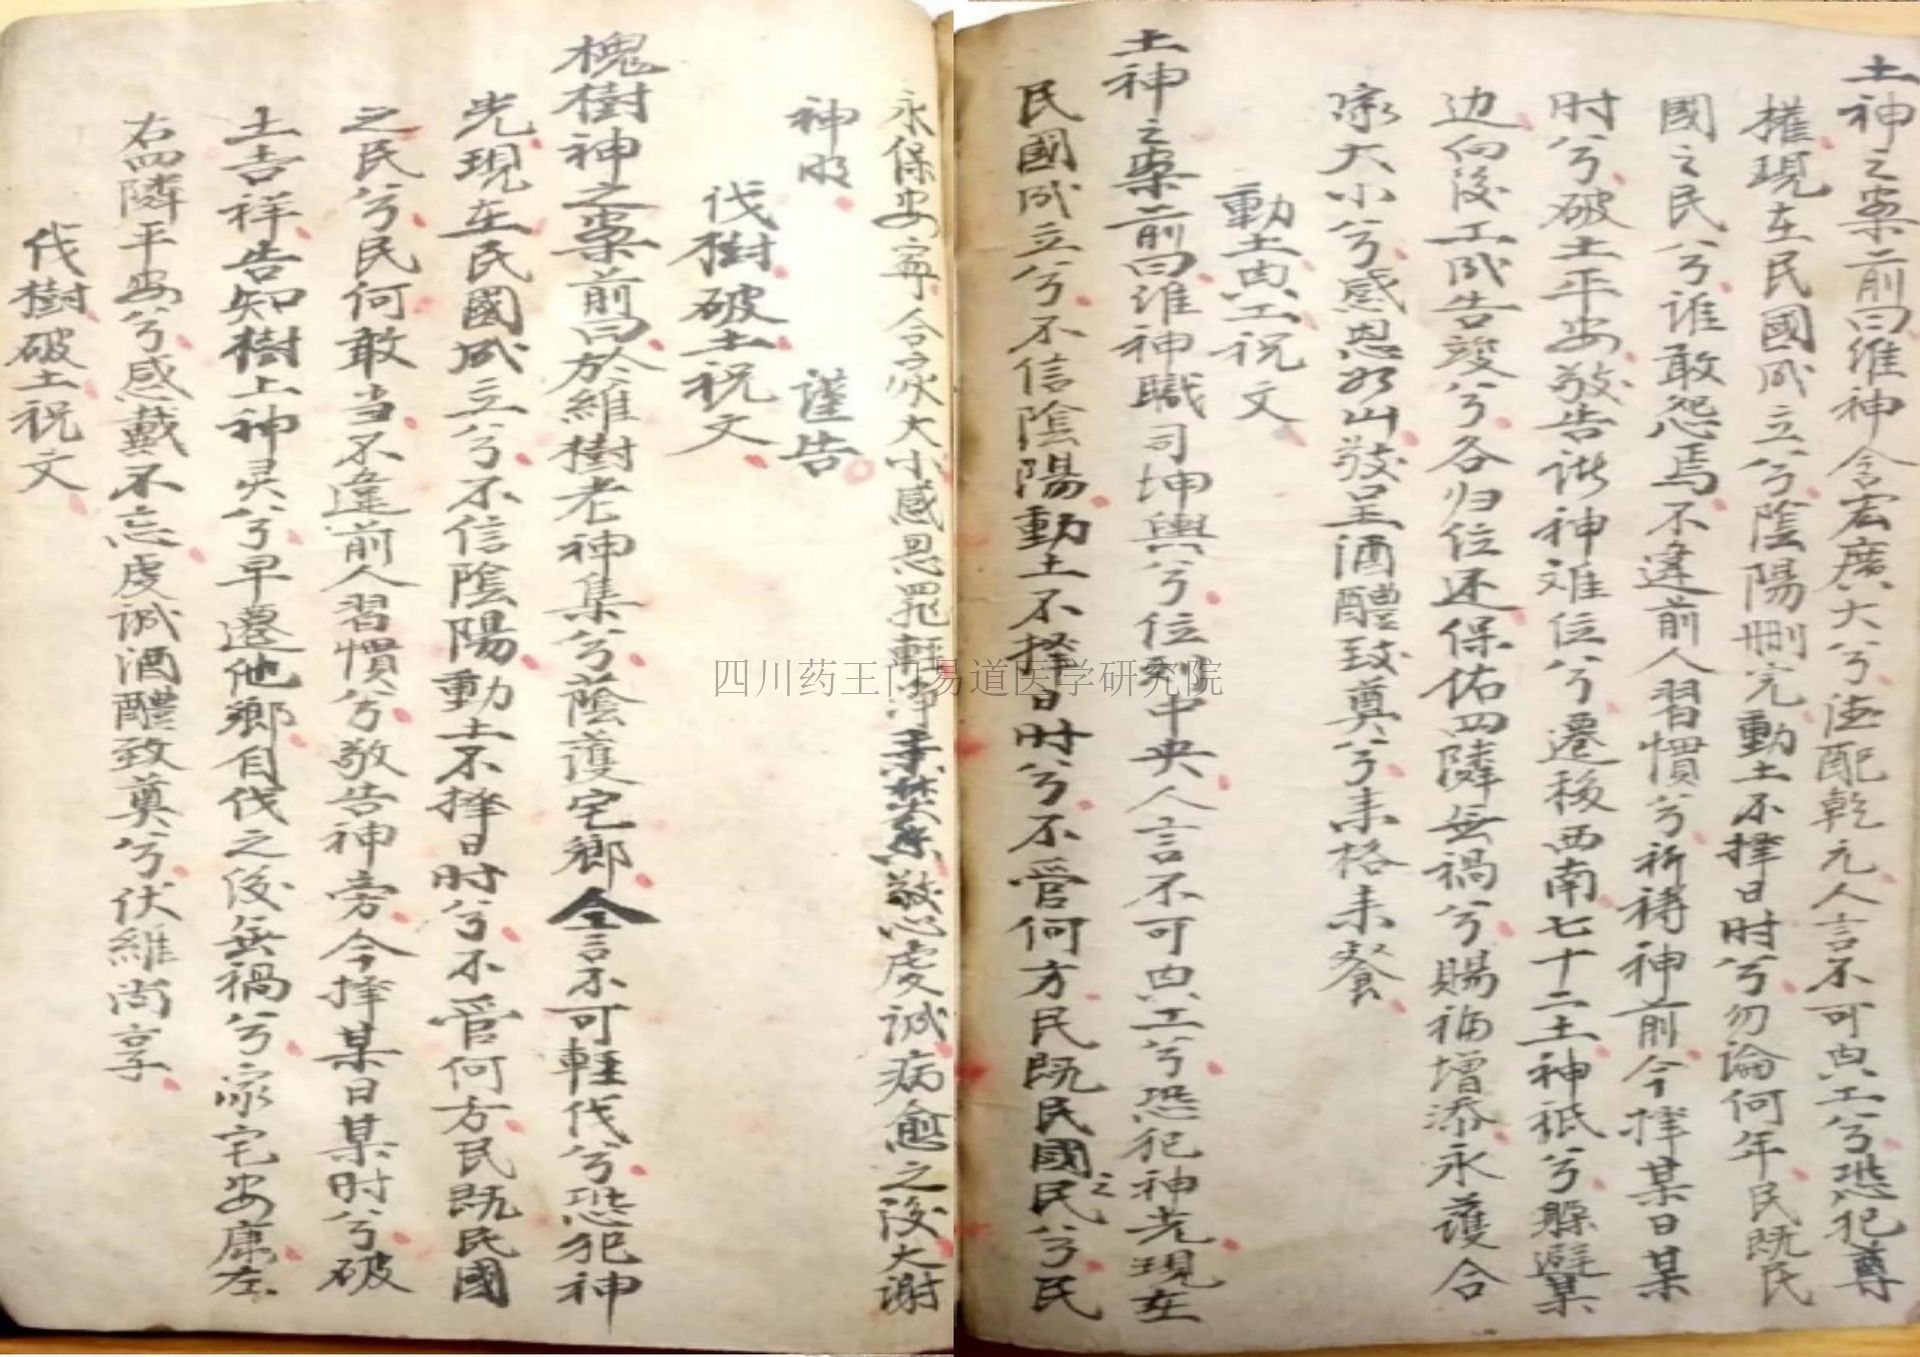 土神之案前曰維神含宏廣大兮德配乾元人言不可典工兮恐犯尊
權現在民國成立兮陰陽刪完動土不擇日时兮勿論何年民既民
國之民兮誰敢怨焉不違前人習慣兮祈禱神前今擇某日某
时兮破土平安敬告諸神难位兮遷移西南七十二土神祇兮躲避某
边向後工成告竣兮各归位还保佑四隣無禍兮賜福增添永護合
家大小兮感恩如山敬呈酒醴致奠兮来格来餐
動土典工祝文
土神之案前曰維神職司坤輿兮位列中央人言不可典工兮恐犯神光現在
民國成立兮不信陰陽動土不擇日时兮不管何方民既民國之民兮民
永保安寧合家大小感恩罪軽敬心虔誠病愈之後大謝
神明 謹告
伐樹破土祝文
槐樹神之案前曰於維樹老神集兮蔭護宅鄉全言不可輕伐兮恐犯神
光現在民國成立兮不信陰陽動土不擇日时兮不管何方民既民國
之民兮民何敢当不違前人習慣兮敬告神旁今擇某日某时兮破
土吉祥告知樹上神灵兮早遷他鄉自伐之後無禍兮家宅安康左
右四隣平安兮感戴不忘虔誠酒醴致奠兮伏維尚享
伐樹破土祝文
四川药王门易道医学研究院